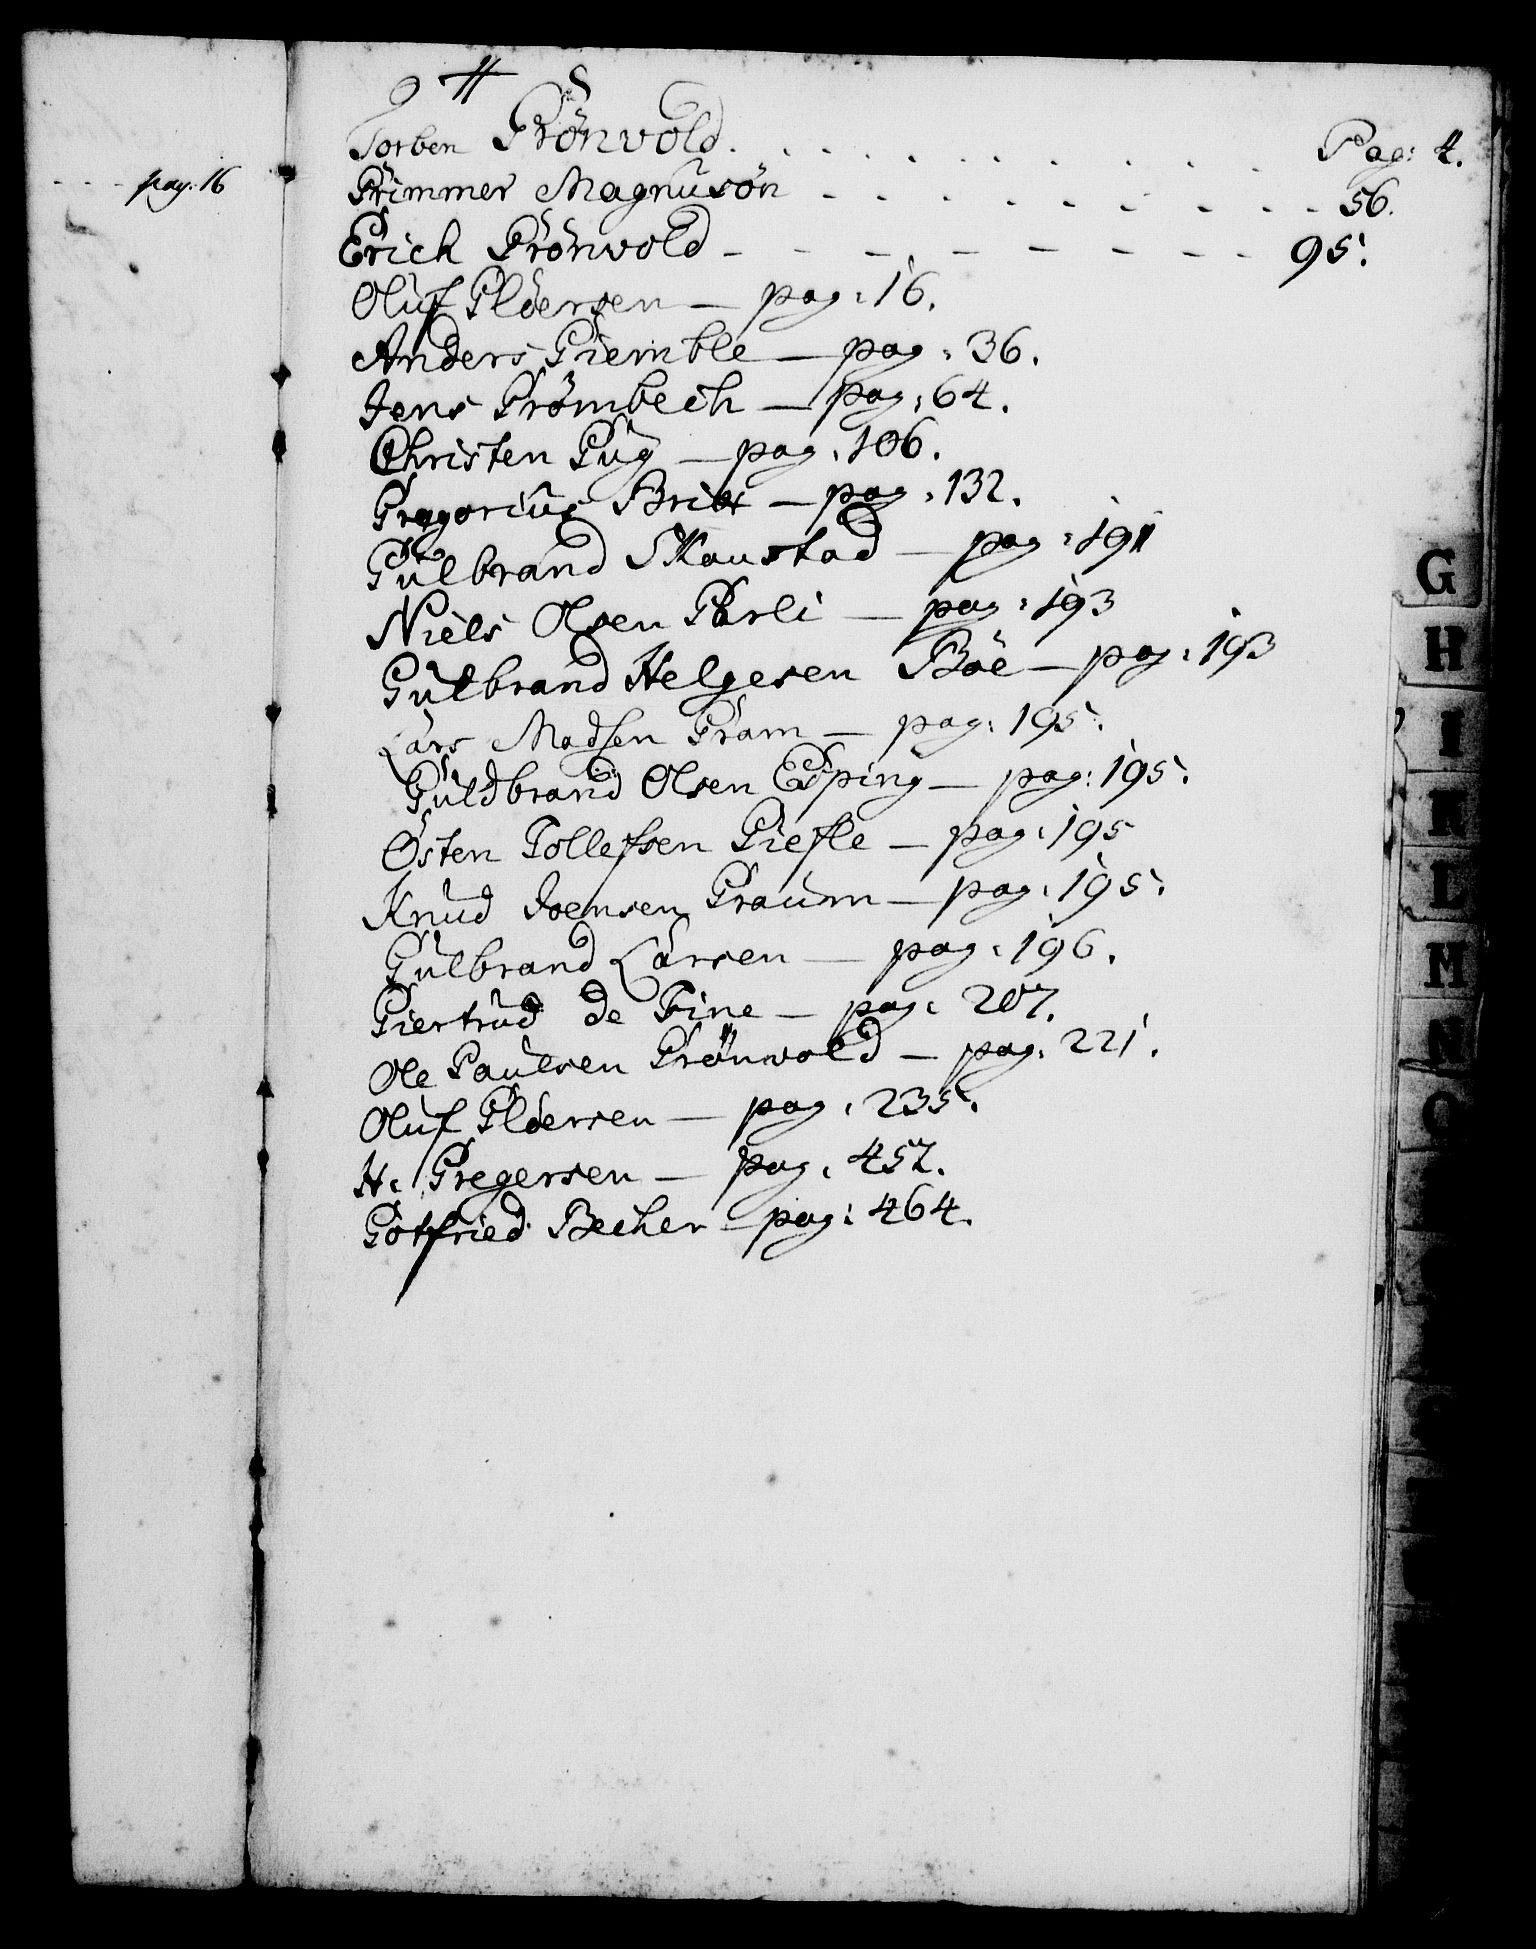 pag: 16
Torben Grønvold . . . . . . . . . . . Pag: 4.
Grimmer Magnusøn - - - - - - - - 56.
Erich Grønvold - - - - - - - - 95.
Oluf Gløersen — pag: 16.
Anders Giemble — pag: 36.
Jens Grømbech — pag: 64.
Christen Gug — pag: 106.
Gregorius Britt — pag: 132.
Gulbrand Skaustad — pag: 191
Niels Olsen Garli — pag: 193
Gulbrand Helgesen Bøe — pag: 193
Lars Madsen Gram — pag: 195.
Guldbrand Olsen Esping — pag: 195.
Østen Tollefsen Giefle — pag: 195
Knud Joensen Graum — pag: 195.
Gulbrand Larsen — pag: 196.
Giertrud de Fine — pag: 207.
Ole Paulsen Grønwold — pag: 221.
Oluf Gløersen — pag: 235.
H: Gregersen — pag: 457.
Gotfried Becher — pag: 464.
G
H
I
K
L
M
N
O